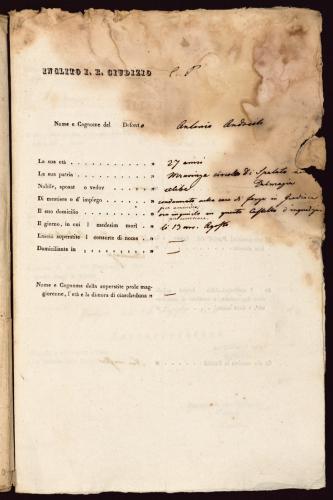 INCLITO I. R. GIUDIZIO C. P.
Nome e Cognome del Defonto Antonio
La sua età . . . . . . . . . » 27 anni
La sua patria . . . . . . . . » circolo di Spalato in
Dalmazia
Nubile, sposat o vedov . . . . . » celibe
Di mestiere o d' impiego . . . . » condannato alla casa di forza in Giudecca
Il suo domicilio . . . . . . . » ora inquisito in questo
Il giorno, in cui i medesim morì . . » li 13 Agosto
Lasciò superstite l consorte di nome . » —
Domiciliante in . . . . . . . . » —
Nome e Cognome della superstite prole mag-
giorenne, l'età e la dimora di ciascheduna » —